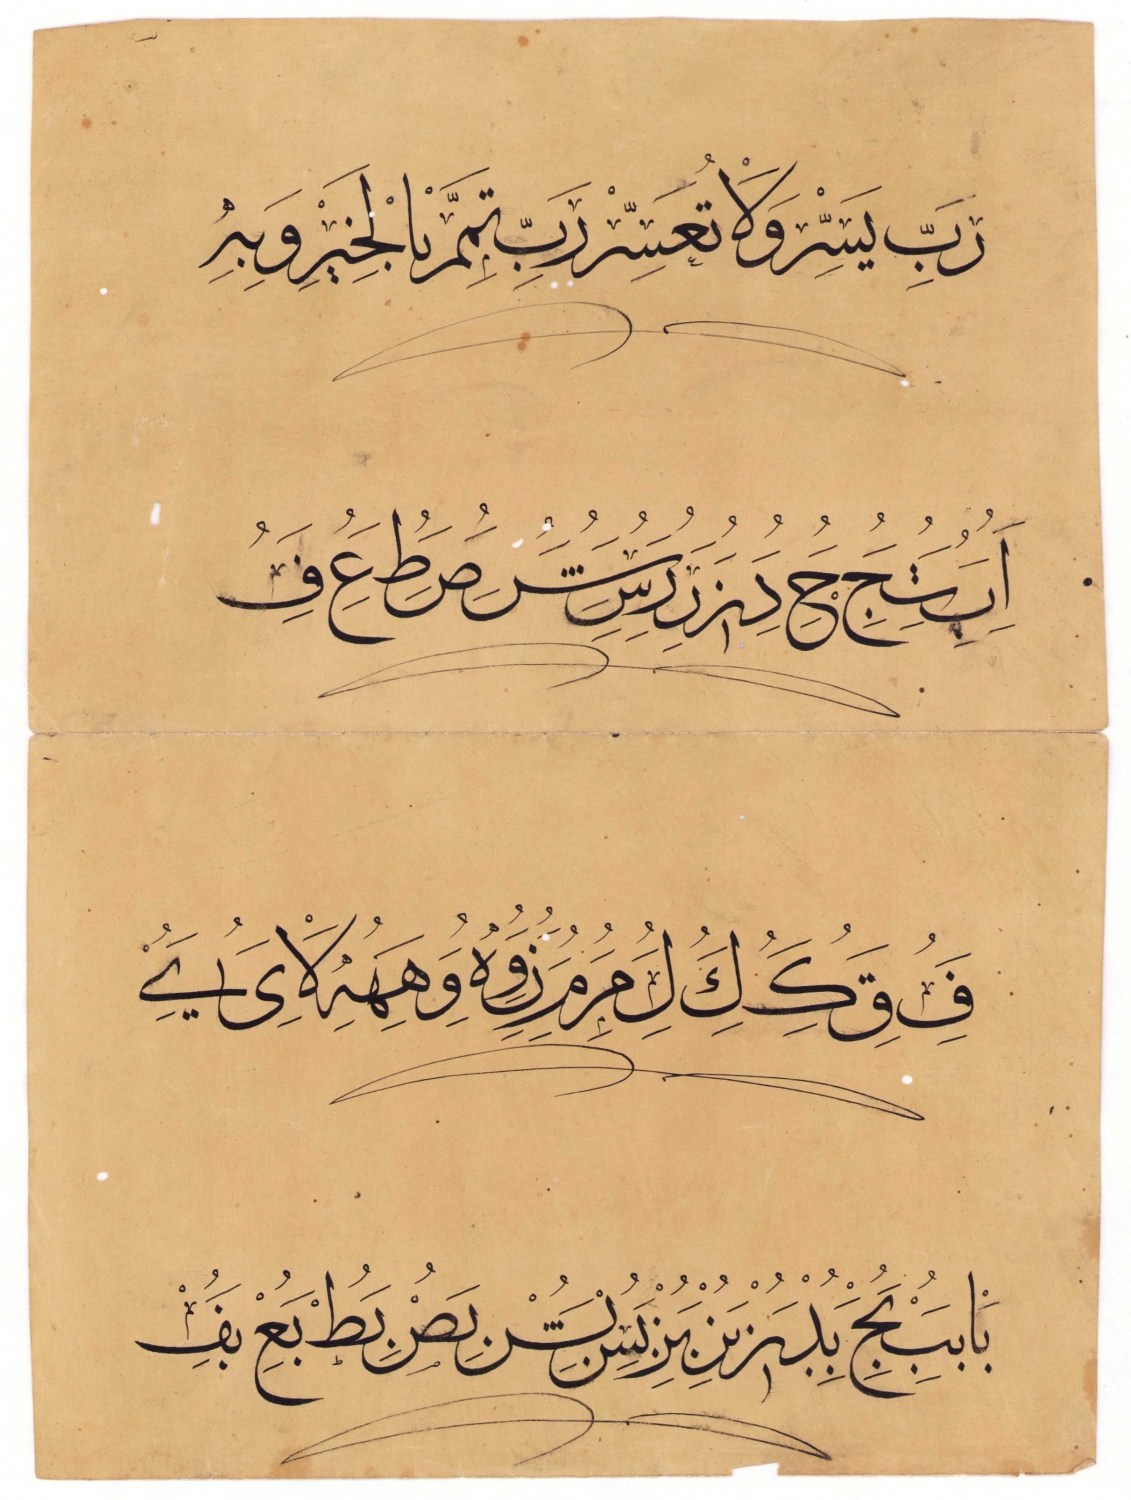 رَبِّ يَسِّرْ وَلَا تُعَسِّرْ رَبِّ تَمِّمْ بِالْخَيْرِ وَبِهِ
اَُِ بَُِ تَُِ جَُِ حَُِ دَُِ رَُِ سَُِ صَُِ طَُِ عَُِ فَُِ
فَُِ قَُِ كَُِ لَُِ مَُِ وَُِ هَُِ لَا ىَُِ
بَا بَبُِ بَجُِ بَدُِ بَرُِ بَسُِ بَصُِ بَطُِ بَعُِ بَفُِ